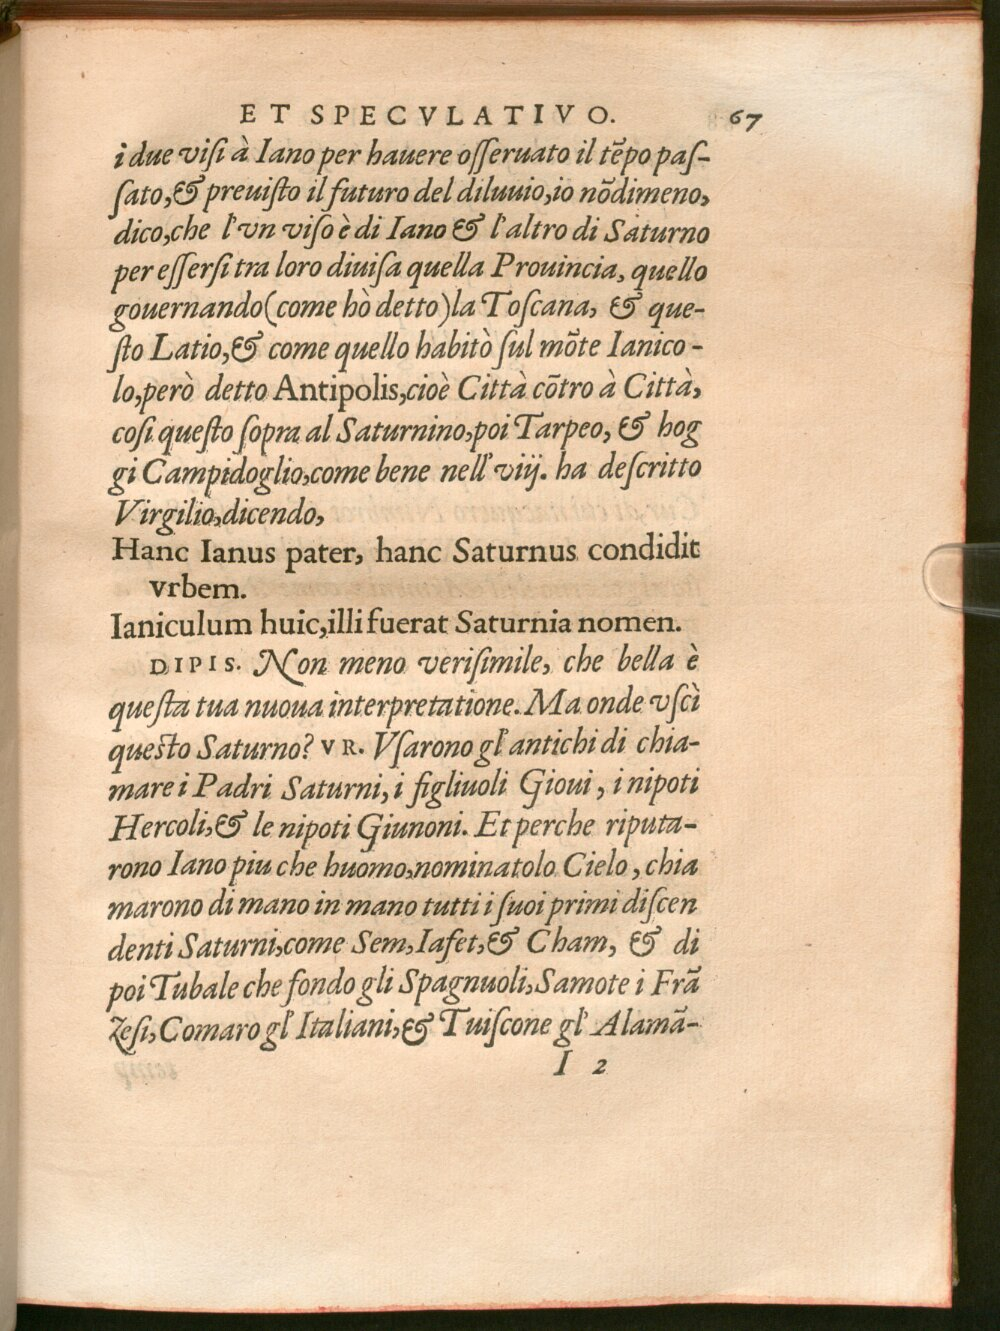 ET SPECVLATIVO. 67
i due visi à Iano per hauere osseruato il tẽpo pas-
sato,& preuisto il futuro del diluuio,io nõdimeno,
dico,che l'vn viso è di Iano & l'altro di Saturno
per essersi tra loro diuisa quella Prouincia, quello
gouernando(come hò detto)la Toscana, & que-
sto Latio,& come quello habitò sul mõte Ianico-
lo,però detto Antipolis,cioè Città cõtro à Città,
cosi questo sopra al Saturnino,poi Tarpeo, & hog
gi Campidoglio,come bene nell'viij. ha descritto
Virgilio,dicendo,
Hanc Ianus pater, hanc Saturnus condidit
vrbem.
Ianiculum huic,illi fuerat Saturnia nomen.
DIPIS. Non meno verisimile, che bella è
questa tua nuoua interpretatione. Ma onde vscì
questo Saturno? VR. Vsarono gl'antichi di chia-
mare i Padri Saturni, i figliuoli Gioui, i nipoti
Hercoli,& le nipoti Giunoni. Et perche riputa-
rono Iano piu che huomo,nominatolo Cielo, chia
marono di mano in mano tutti i suoi primi discen
denti Saturni,come Sem,Iafet,& Cham, & di
poi Tubale che fondo gli Spagnuoli,Samote i Frã
Zesi,Comaro gl'Italiani,& Tuiscone gl'Alamã-
I 2